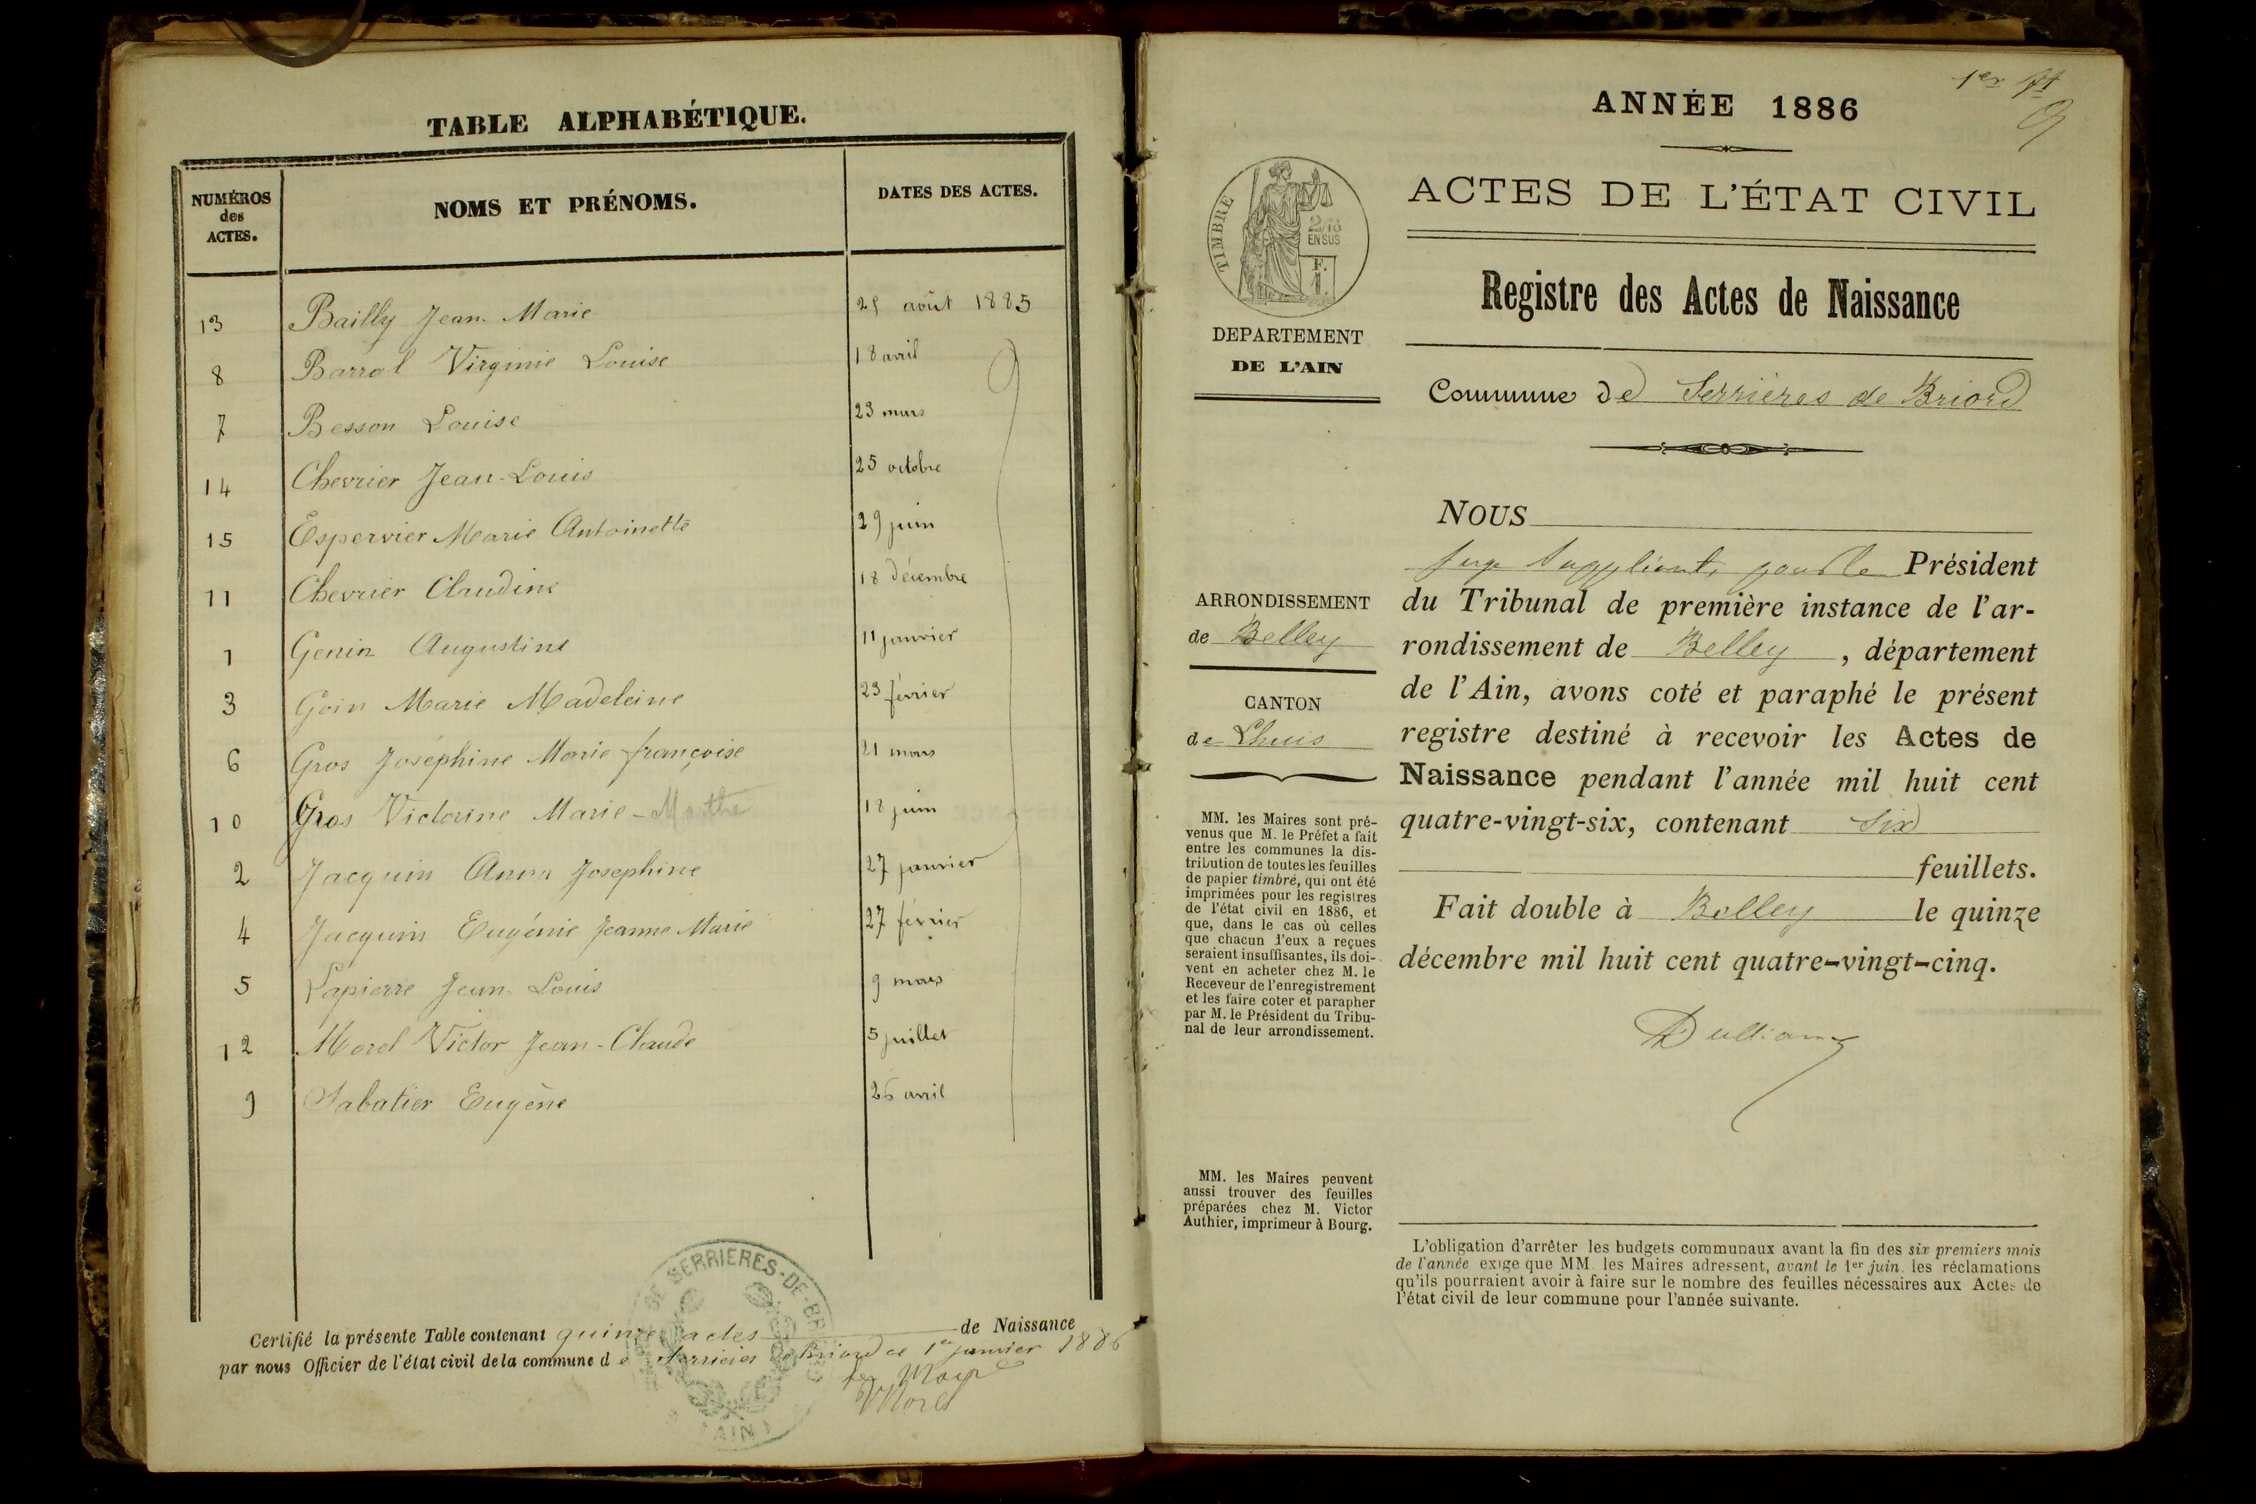 TABLE ALPHABÉTIQUE.
NUMÉROS des ACTES. NOMS ET PRÉNOMS. DATES DES ACTES.
13 Bailly Jean Marie 25 août 1885
8 Barral Virginie Louise 18 avril
7 Besson Louise 23 mars
14 Chevrier Jean-Louis 25 octobre
15 Espervier Marie Antoinette 29 juin
11 Chevrier Claudine 18 décembre
1 Genin Augustine 11 janvier
3 Goin Marie Madeleine 23 février
6 Gros Joséphine Marie françoise 21 mars
10 Gros Victorine Marie-Marthe 18 juin
2 Jacquin Anna Josephine 27 janvier
4 Jacquin Eugénie Jeanne Marie 27 février
5 Lapierre Jean Louis 9 mars
12 Morel Victor Jean-Claude 5 juillet
9 Sabatier Eugène 26 avril
Certifié la présente Table contenant quinze actes de Naissance
par nous Officier de l'état civil de la commune de Serrières de Briord ce 1er janvier 1886
Le Maire
Morel
SERRIERES-DE-BRIORD
AIN
1er
ANNÉE 1886
TIMBRE
2/10
EN SUS
F.
1.
ACTES DE L'ÉTAT CIVIL
Registre des Actes de Naissance
DEPARTEMENT
DE L'AIN
Commune de Serrières de Briord
NOUS
Juge Suppléant, pour le Président
du Tribunal de première instance de l'ar-
rondissement de Belley, département
de l'Ain, avons coté et paraphé le présent
registre destiné à recevoir les Actes de
Naissance pendant l'année mil huit cent
quatre-vingt-six, contenant six
feuillets.
Fait double à Belley le quinze
décembre mil huit cent quatre-vingt-cinq.
ARRONDISSEMENT
de Belley
CANTON
de Lhuis
MM. les Maires sont pré-
venus que M. le Préfet a fait
entre les communes la dis-
tribution de toutes les feuilles
de papier timbré, qui ont été
imprimées pour les registres
de l'état civil en 1886, et
que, dans le cas où celles
que chacun d'eux a reçues
seraient insuffisantes, ils doi-
vent en acheter chez M. le
Receveur de l'enregistrement
et les faire coter et parapher
par M. le Président du Tribu-
nal de leur arrondissement.
MM. les Maires peuvent
aussi trouver des feuilles
préparées chez M. Victor
Authier, imprimeur à Bourg.
L'obligation d'arrêter les budgets communaux avant la fin des six premiers mois
de l'année exige que MM. les Maires adressent, avant le 1er juin, les réclamations
qu'ils pourraient avoir à faire sur le nombre des feuilles nécessaires aux Actes de
l'état civil de leur commune pour l'année suivante.